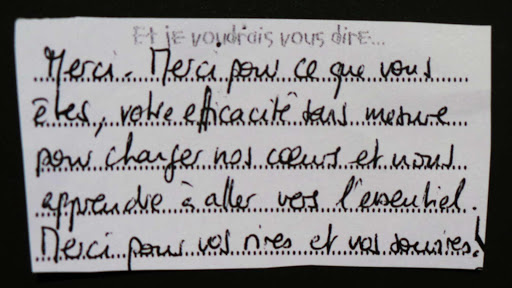 Et je voudrais vous dire...
Merci. Merci pour ce que vous
êtes, votre efficacité sans mesure
pour changer nos cœurs et nous
apprendre à aller vers l'essentiel.
Merci pour vos rires et vos sourires!